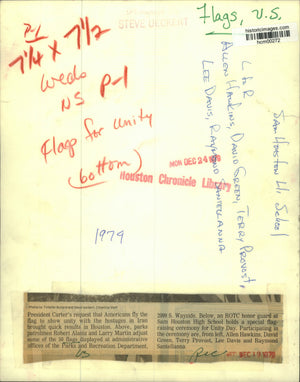 Flags, U.S.
historicimages.com
hcm00272
STEVE UECKERT
7 1/4 X 7 1/2
Weds
NS P-1
Flags for Unity
(bottom)
L to R
Allen Hawkins, David Green, Terry Provost,
Lee Davis, Raymond Santillanna
Sam Houston Hi School
MON DEC 24 1979
Houston Chronicle Library
1979
President Carter's request that Americans fly the
flag to show unity with the hostages in Iran
brought quick results in Houston. Above, parks
patrolmen Robert Alaniz and Larry Martin adjust
some of the 50 flags displayed at administrative
offices of the Parks and Recreation Department,
2999 S. Wayside. Below, an ROTC honor guard at
Sam Houston High School holds a special flag-
raising ceremony for Unity Day. Participating in
the ceremony are, from left, Allen Hawkins, David
Green, Terry Provost, Lee Davis and Raymond
Santillanna
DEC 19 1979